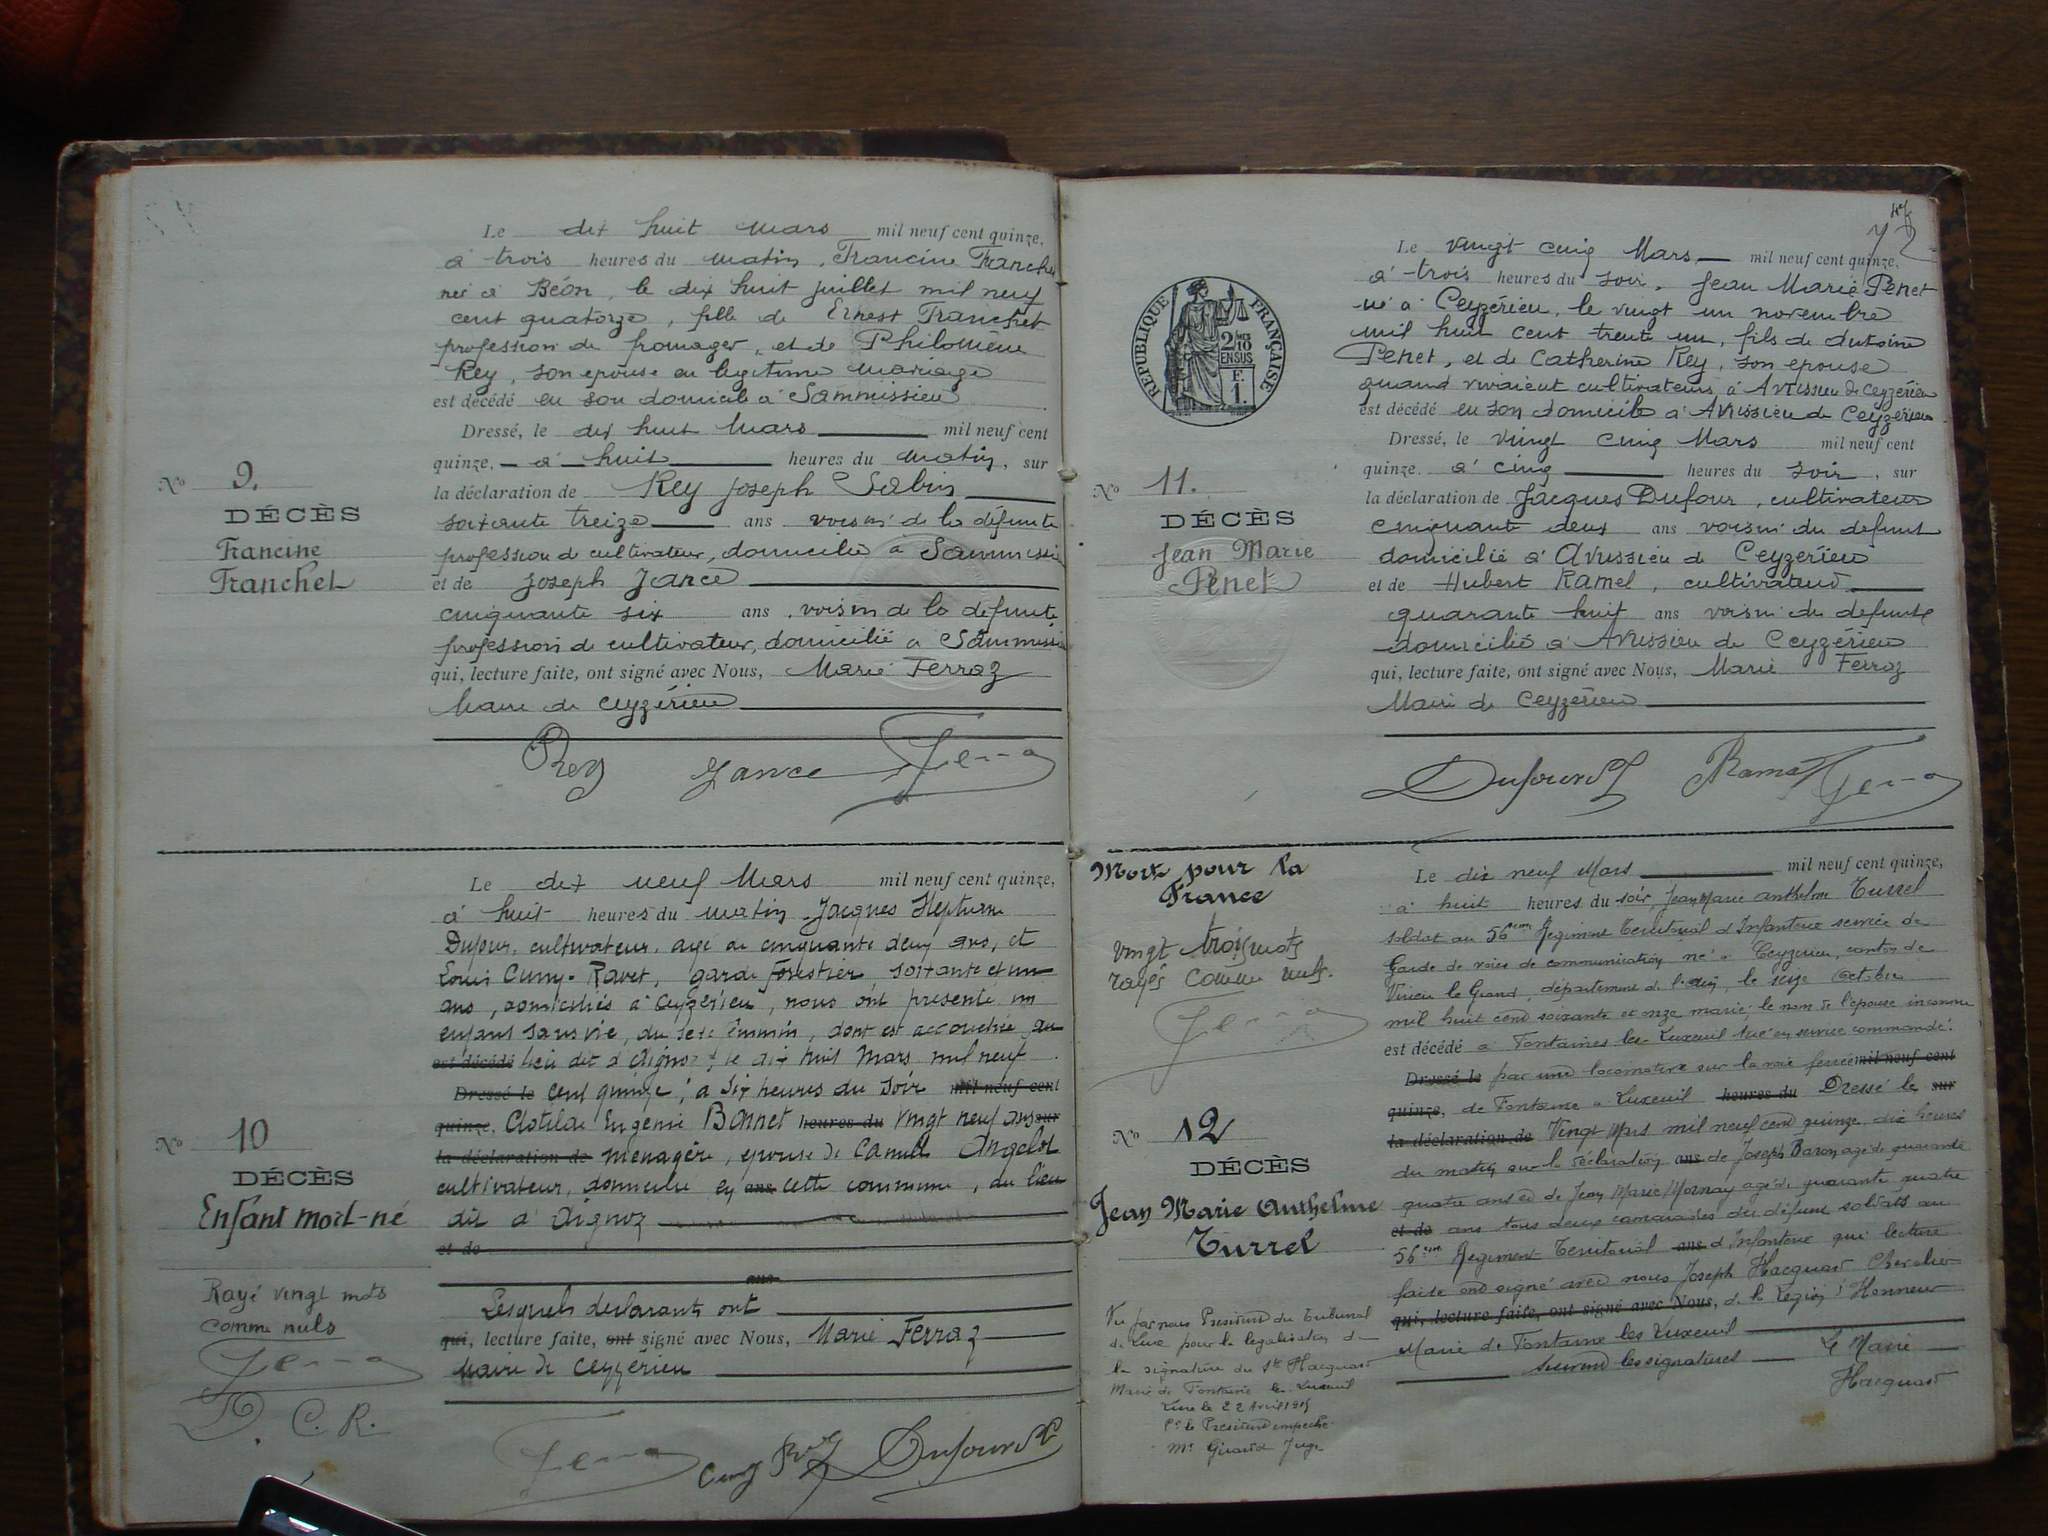 Le dix huit Mars mil neuf cent quinze,
à trois heures du matin, Francine Franchet
née à Béon, le dix huit juillet mil neuf
cent quatorze, fille de Ernest Franchet
profession de fromager, et de Philomène
Rey, son epouse en legitime mariage
est décédé en son domicile à Sammissieu
Dressé, le dix huit Mars mil neuf cent
quinze, à huit heures du matin, sur
la déclaration de Rey Joseph Sabin
soixante treize ans voisin de la défunte
profession de cultivateur, domicilié à Sammissieu
et de Joseph Jance
cinquante six ans voisin de la defunte
profession de cultivateur, domicilié à Sammissieu
qui, lecture faite, ont signé avec Nous, Marie Ferraz
Maire de Ceyzérieu
Rey Jance Ferraz
No 9.
DÉCÈS
Francine
Franchet
Le dix neuf Mars mil neuf cent quinze,
à huit heures du matin Jacques
Dufour, cultivateur, age de cinquante deux ans, et
Louis Cuny-Ravet, garde Forestier, soixante et un
ans, domiciliés à Ceyzérieu, nous ont presenté un
enfant sans vie, du sexe féminin, dont est accouchée au
est décédé lieu dit d'Aignoz, le dix huit Mars mil neuf
Dressé le cent quinze, à six heures du soir mil neuf cent
quinze, Clotilde Eugénie Bonnet heures du vingt neuf ans sur
la déclaration de menagère, epouse de Camille Angelot
cultivateur, domicilié en ans cette commune, du lieu
dit d'Aignoz
et de
ans
Lesquels declarants ont
qui, lecture faite, ont signé avec Nous, Marie Ferraz
Maire de Ceyzérieu
No 10
DÉCÈS
Enfant mort-né
Rayé vingt mots
comme nuls
Ferraz
D. C. R.
Ferraz Cuny Dufour
47
72
RÉPUBLIQUE FRANÇAISE
2/10
EN SUS
F.
1.
Le vingt cinq Mars mil neuf cent quinze,
à trois heures du soir, Jean Marie Penet
né à Ceyzérieu, le vingt un novembre
mil huit cent trente un, fils de Antoine
Penet, et de Catherine Rey, son epouse
quand vivaient cultivateurs, à Avrissieu de Ceyzérieu
est décédé en son domicile à Avrissieu de Ceyzérieu
Dressé, le vingt cinq Mars mil neuf cent
quinze à cinq heures du soir, sur
la déclaration de Jacques Dufour, cultivateur
cinquante deux ans voisin du defunt
domicilié à Avrissieu de Ceyzérieu
et de Hubert Ramel, cultivateur
quarante huit ans voisin du defunt
domicilié à Avrissieu de Ceyzérieu
qui, lecture faite, ont signé avec Nous, Marie Ferraz
Maire de Ceyzérieu
Dufour Ramel Ferraz
No 11.
DÉCÈS
Jean Marie
Penet
Mort pour la
France
vingt trois mots
rayés comme nuls.
Ferraz
No 12
DÉCÈS
Jean Marie Anthelme
Turrel
Vu par nous President du Tribunal
de Lure pour la legalisation de
la signature du Sr Hacquard
Maire de Fontaine les Luxeuil
Lure le 22 Avril 1915
Pr le President empeché
Mr Girard Juge
Le dix neuf Mars mil neuf cent quinze,
à huit heures du soir, Jean Marie Anthelme Turrel
soldat au 56eme Regiment Territorial d'Infanterie service de
Garde de voies de communication né à Ceyzerieu, canton de
Virieu le Grand, département de l'Ain, le seize Octobre
mil huit cent soixante et onze, marié, le nom de l'épouse inconnu
est décédé à Fontaines les Luxeuil tué en service commandé
Dressé le par une locomotive sur la voie ferrée mil neuf cent
quinze, de Fontaine à Luxeuil heures du Dressé le sur
la déclaration de Vingt Mars mil neuf cent quinze, dix heures
du matin sur la déclaration ans de Joseph Baron agé de quarante
quatre ans et de Jean Marie Mornay agé de quarante quatre
et de ans tous deux camarades du défunt soldats au
56eme Regiment Territorial ans d'Infanterie qui lecture
faite ont signé avec nous Joseph Hacquard Chevalier
qui, lecture faite, ont signé avec Nous, de la Legion d'Honneur
Maire de Fontaine les Luxeuil
suivent les signatures Le Maire
Hacquard